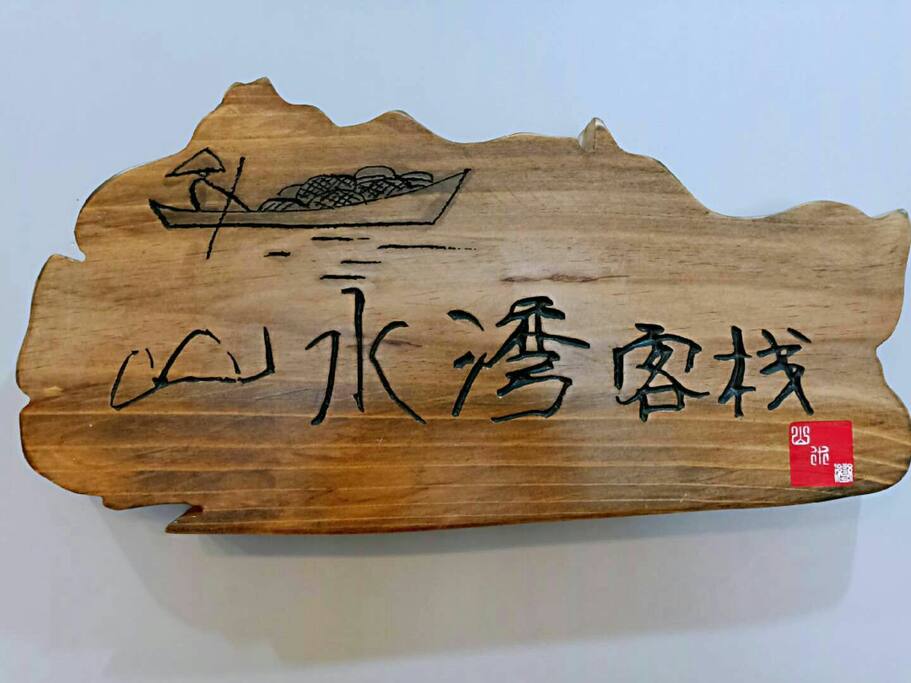 山水湾客栈